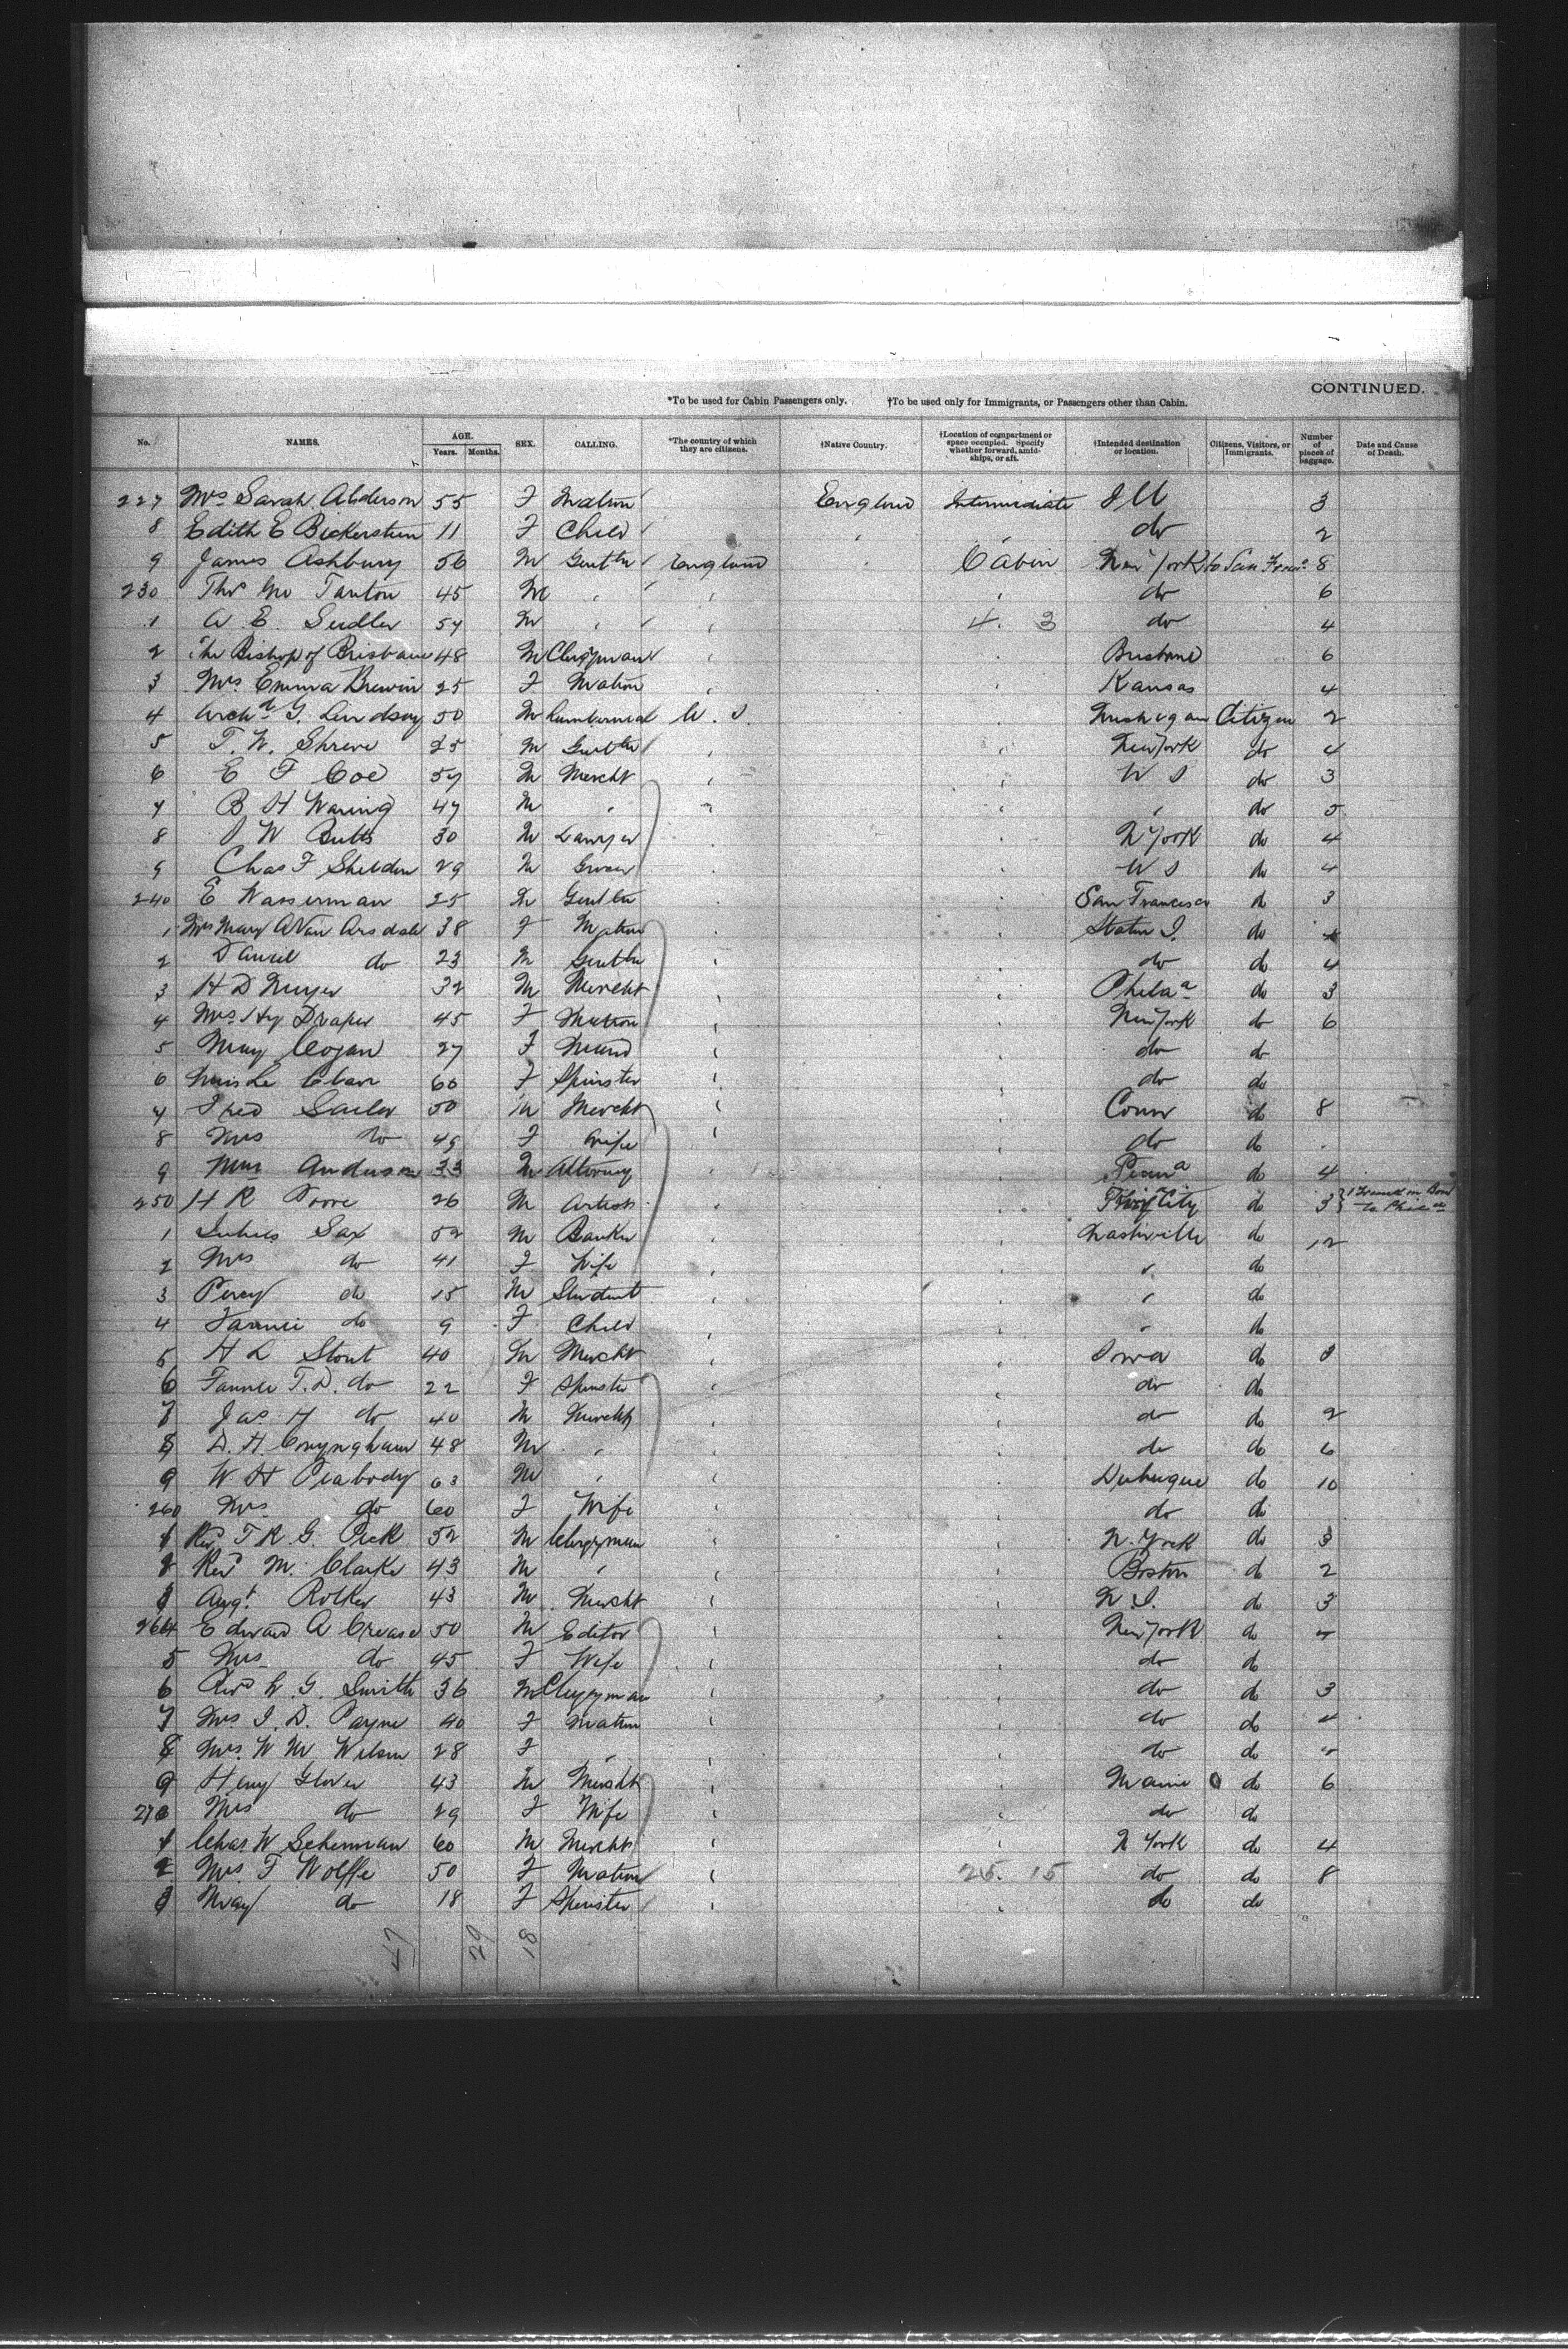 CONTINUED.
*To be used for Cabin Passengers only. †To be used only for Immigrants, or Passengers other than Cabin.
No. NAMES. AGE. Years. Months. SEX. CALLING. *The country of which they are citizens. †Native Country. †Location of compartment or space occupied. Specify whether forward, amidships, or aft. †Intended destination or location. Citizens, Visitors, or Immigrants. Number of pieces of baggage. Date and Cause of Death.
227 Mrs Sarah Anderson 55 F Matron England Intermediate Ill 3
8 Edith E 11 F Child " do 2
9 James Ashbury 56 M Gentln England Cabin New York to San Franco 8
230 Thos Geo Tanton 45 M " " " do 6
1 A E Sudler 54 M " " 4. 3 do 4
2 The Bishop of Brisbane 48 M Clergyman " " Brisbane 6
3 Mrs Emma Brewin 25 F Matron " " Kansas 4
4 Archd G. Lindsay 50 M U. S. Muskegan Citizen 2
5 T. W. Shreve 25 M Gentln " " New York do 4
6 E F Coe 54 M Mercht " " U S do 3
7 B H Waring 47 M " " " " do 5
8 W Butts 30 M Lawyer " N York do 4
9 Chas F Sheldon 29 M " U S do 4
240 E Wasserman 25 M Gentln " San Francisco do 3
1 Mrs Mary A Van Arsdale 38 F Matron " Staten I. do 4
2 Daniel do 23 M Gentln " do do 4
3 H D 32 M Mercht " " Phila do 3
4 Mrs Hy Draper 45 F Matron " " New York do 6
5 May Cogan 27 F Maid " " do do
6 Miss Le Clare 60 F Spinster " " do do
7 Fred Sailer 50 M Mercht " " Conn do 8
8 Mrs do 49 F Wife " " do do
9 Wm Anderson 33 M Attorney " " Penna do 4
250 H R Poore 26 M Artist " " City do 3 } 1 Trunk in Bond to Phila
1 Julius Sax 52 M Banker " " Nashville do 12
2 Mrs do 41 F Wife " " " do
3 Percy do 15 M Student " " " do
4 Fannie do 9 F Child " " " do
5 H L Stout 40 M Mercht " " Iowa do 8
6 Fannie T. D. do 22 F Spinster " " do do
7 Jas H do 40 M Mercht " " do do 2
8 D. H Conyngham 48 M " " " do do 6
9 W H Peabody 63 M " " " Dubuque do 10
260 Mrs do 60 F Wife " " do do
1 Revd T R. G. Peck 52 M Clergyman " " N. York do 3
2 Revd M. Clarke 43 M " " " Boston do 2
3 Augt Rolker 43 M Mercht " " do 3
264 Edward A 50 M Editor " " New York do 4
5 Mrs do 45 F Wife " " do do
6 Revd W. G. Smith 36 M Clergyman " " do do 3
7 Mrs I. D. Payne 40 F Matron " " do do 4
8 Mrs. W M Wilson 28 F " " " do do
9 Henry Glover 43 M Mercht " " Maine do 6
270 Mrs do 29 F Wife " " do do
1 Chas. W Scherman 60 M Mercht " " N York do 4
2 Mrs. F Wolffe 50 F Matron " 25. 15 do do 8
3 May do 18 F Spinster " " do do
47 29 18